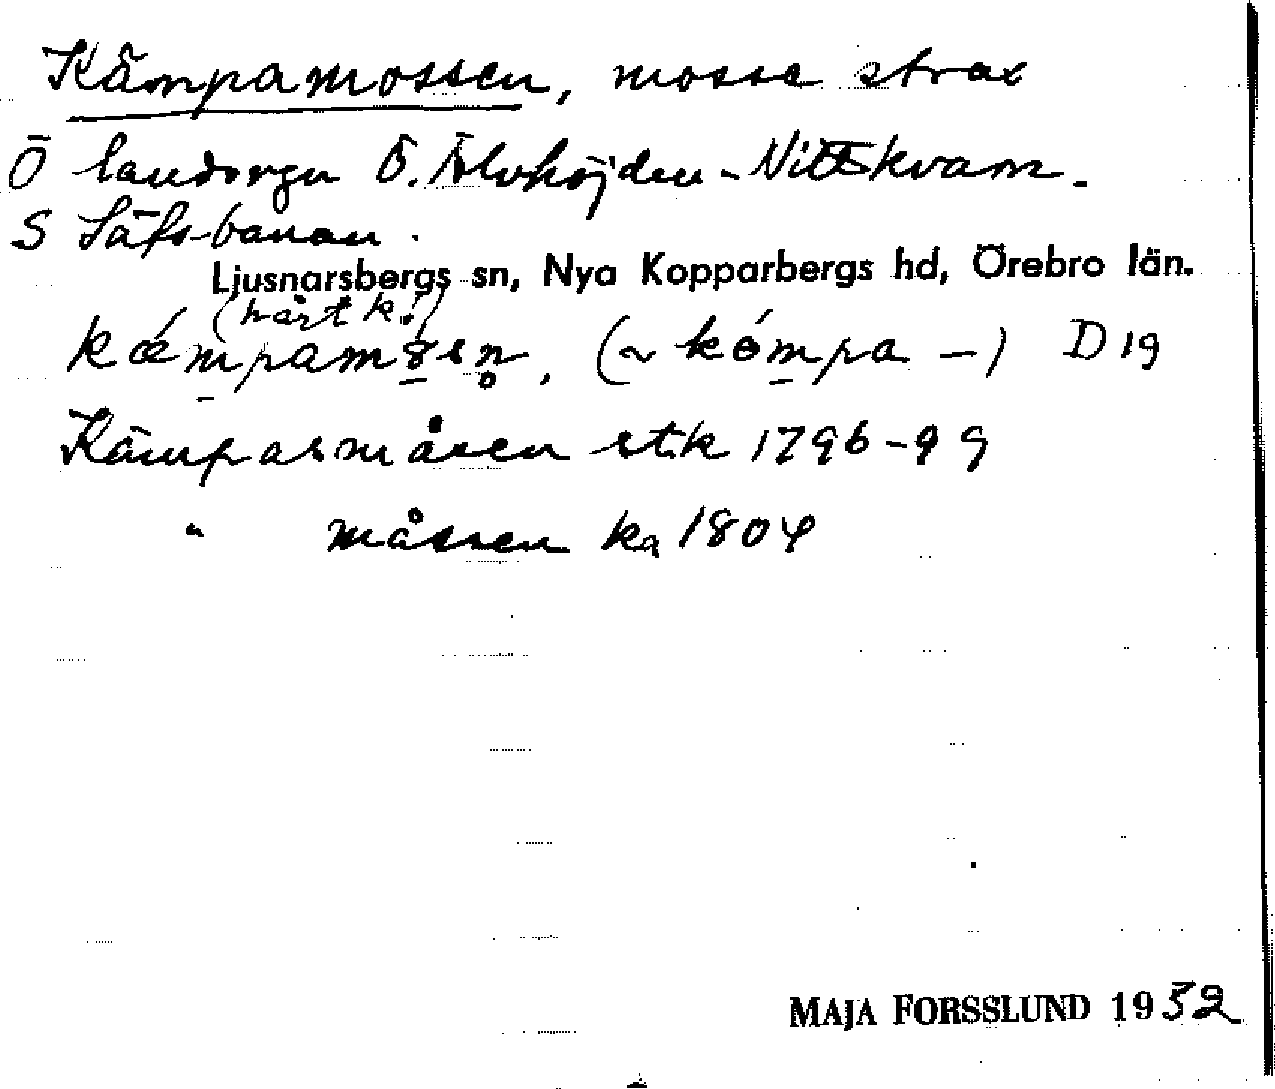 Kämpamossen, mosse strax
Ö landsvägen Ö. Älvhöjden - Nittkvarn.
S Säfsbanan.
Ljusnarsbergs sn, Nya Kopparbergs hd, Örebro län.
(hårt k!)
kǽmpamɷsn̥. (~ kömpa –) D 19
Kämpasmåsen stk 1796-99
" måssen ka 1804
MAJA FORSSLUND 1952